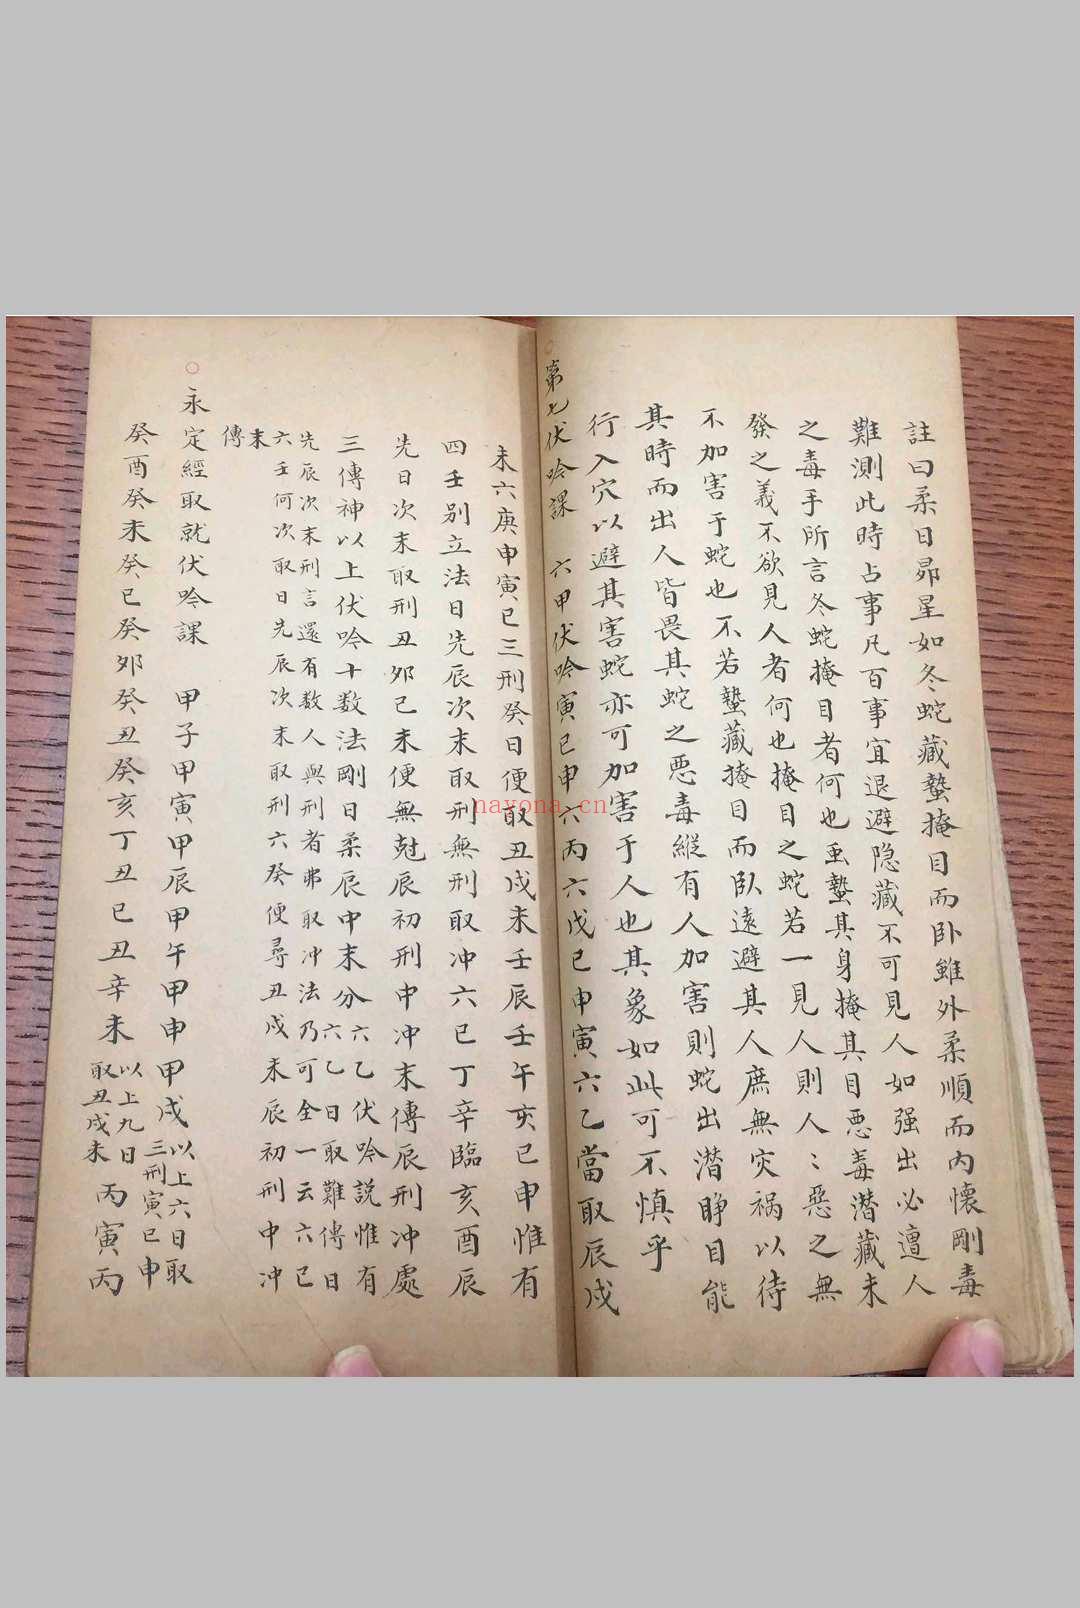 註曰柔日昴星如冬蛇藏蟄掩目而卧雖外柔順而内懷剛毒
難測此時占事凡百事宜退避隐藏不可見人如强出必遭人
之毒手所言冬蛇掩目者何也虽蟄其身掩其目悪毒潜藏未
發之義不欲見人者何也掩目之蛇若一見人則人〻惡之無
不加害于蛇也不若蟄藏掩目而卧遠避其人庶無灾祸以待
其時而出人皆畏其蛇之悪毒縱有人加害則蛇出潜睁目能
行入穴以避其害蛇亦可加害于人也其象如此可不慎乎
第七伏吟課　六甲伏吟寅巳申六丙六戊巳申寅六乙當取辰戌
未六庚申寅巳三刑癸日便取丑戌未壬辰壬午亥已申惟有
四壬别立法日先辰次末取刑無刑取冲六巳丁辛臨亥酉辰
先日次末取刑丑夘已未便無尅辰初刑中冲末傳辰刑冲處
三傳神以上伏吟十数法剛日柔辰中末分六乙伏吟説惟有
六乙日取難傳日
先辰次末刑言還有数人與刑者弗取冲法乃可全一云六已
六壬何次取日先辰次末取刑六癸便尋丑戌未辰初刑中冲
末
傳
永定經取就伏吟課　甲子甲寅甲辰甲午甲申甲戌以上六日取
三刑寅巳申
癸酉癸未癸巳癸夘癸丑癸亥丁丑巳丑辛未以上九日
取丑戌未丙寅丙
nayona.cn